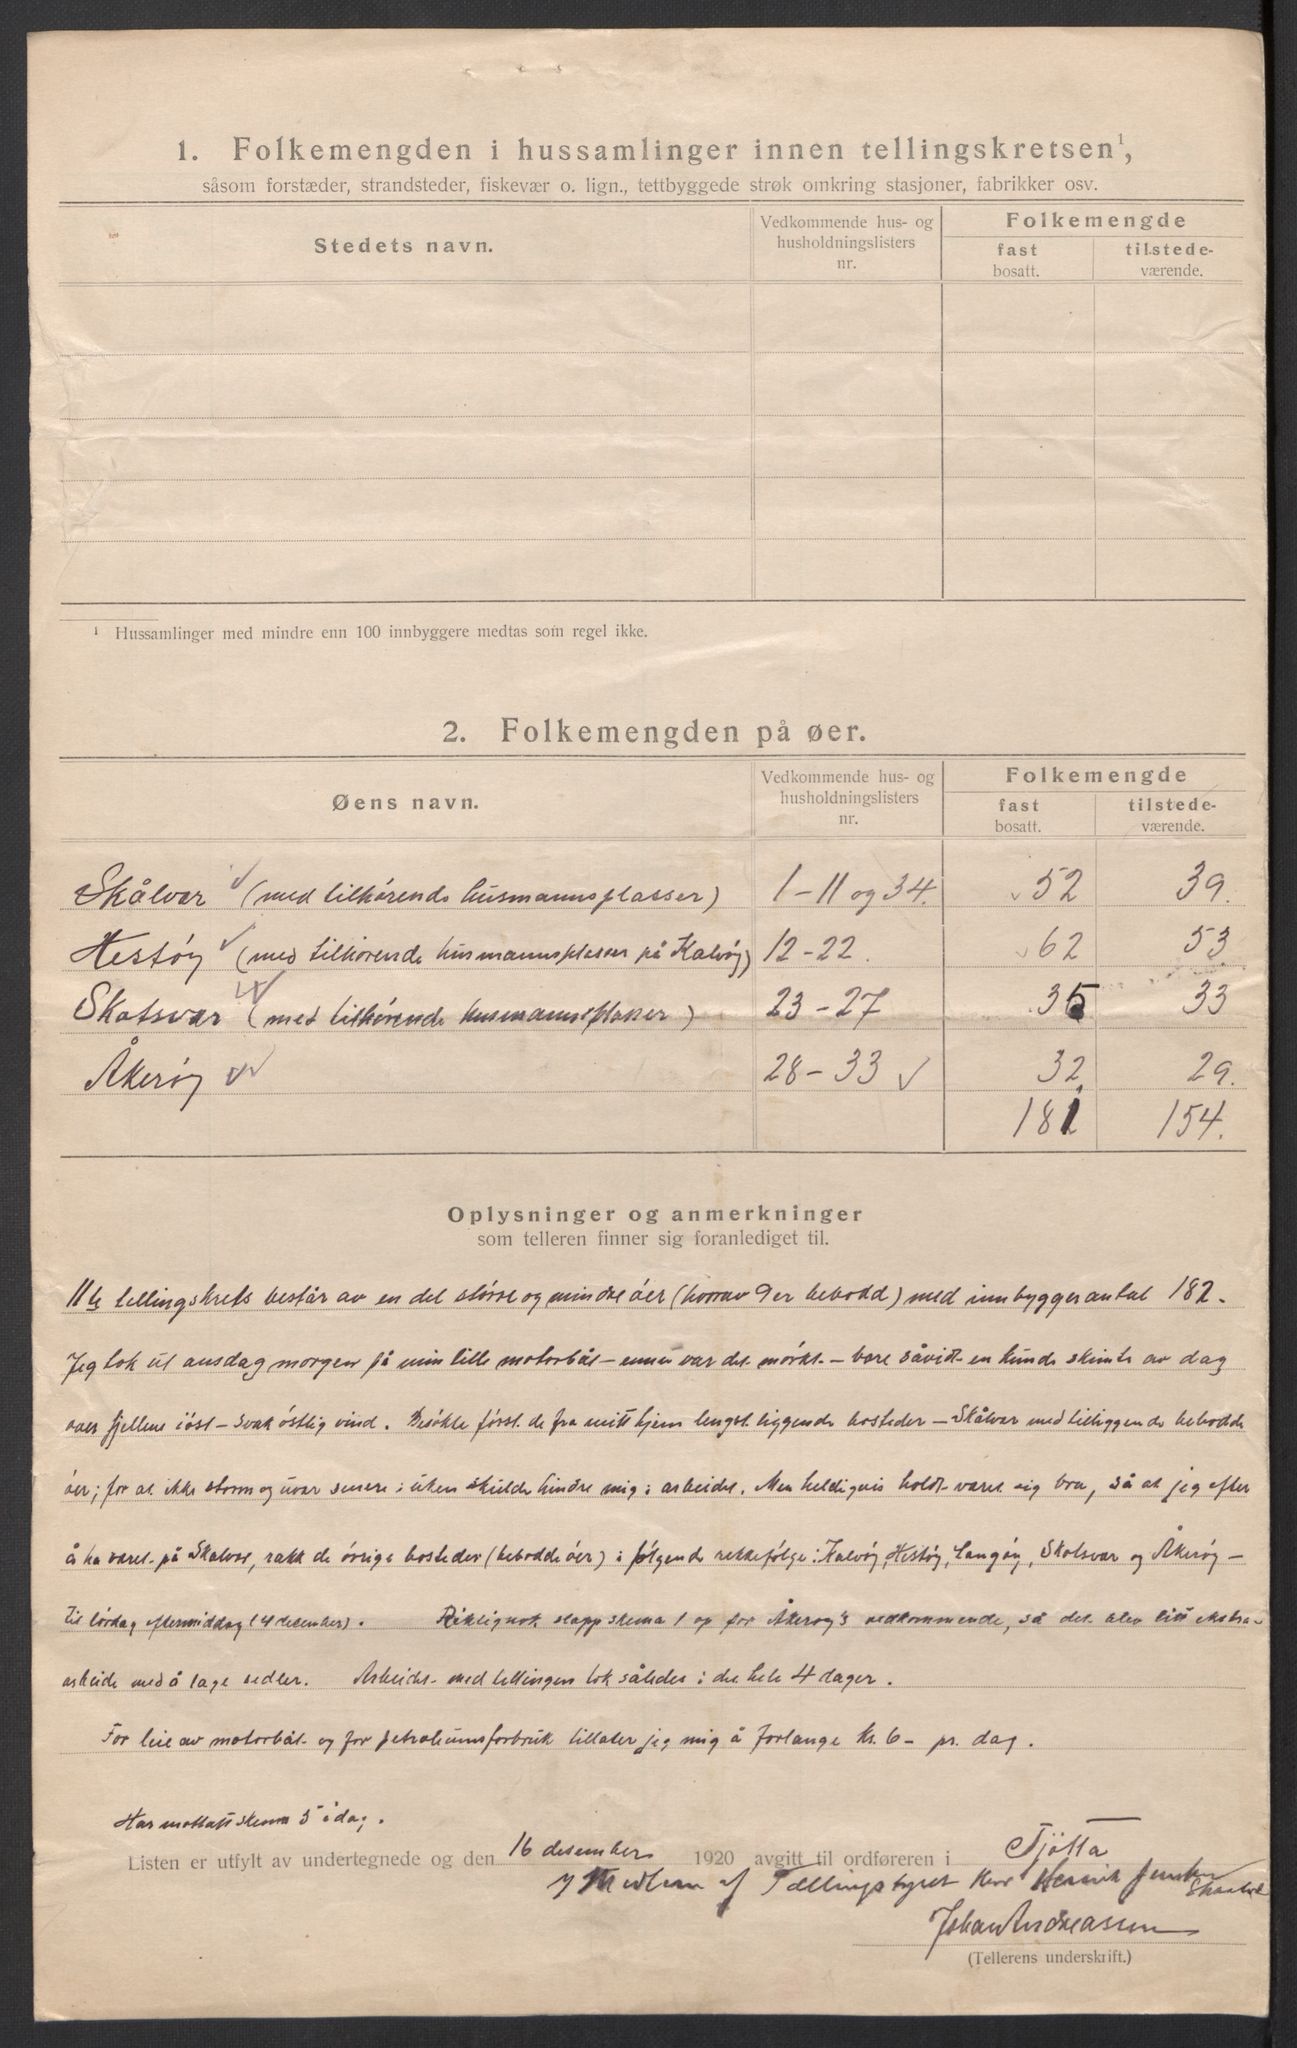 1. Folkemengden i hussamlinger innen tellingskretsen¹,
såsom forstæder, strandsteder, fiskevær o. lign., tettbyggede strøk omkring stasjoner, fabrikker osv.
Stedets navn.
Vedkommende hus- og husholdningslisters nr.
Folkemengde
fast bosatt.
tilstede-værende.
¹ Hussamlinger med mindre enn 100 innbyggere medtas som regel ikke.
2. Folkemengden på øer.
Øens navn.
Vedkommende hus- og husholdningslisters nr.
Folkemengde
fast bosatt.
tilstede-værende.
Skålvær (med tilhørende husmannsplasser) 1-11 og 34. 52 39.
Hestøy (med tilhørende husmannsplasser på Kalvøy) 12-22. 62 53
Skotsvær (med tilhørende husmannsplasser) 23-27 35 33
Åkerøy 28-33 32 29.
181 154.
Oplysninger og anmerkninger
som telleren finner sig foranlediget til.
11te tellingskrets består av en del större og mindre öer (hvorav 9 er bebodd) med innbyggerantal 182.
Jeg tok ut onsdag morgen på min lille motorbåt - ennu var det mörkt - bare såvidt en kunde skimte av dag
over fjellene i öst - svak östlig vind. Besökte först de fra mitt hjem lengst liggende bosteder - Skålvær med tilliggende bebodde
öer; for at ikke storm og uvær senere i uken skulde hindre mig i arbeidet. Men heldigvis holdt været sig bra, så at jeg efter
å ha været på Skålvær, rakk de övrige bosteder (bebodde öer) i fölgende rekkefölge: Kalvöy, Hestöy, Langöy, Skotsvær og Åkeröy -
til lördag eftermiddag (4 december). Riktignok slapp skema 1 op for Åkeröy's vedkommende, så det blev litt ekstra-
arbeide med å lage sedler. Arbeidet med tellingen tok således i det hele 4 dager.
For leie av motorbåt og for petroleumsforbruk tillater jeg mig å forlange kr. 6- pr. dag.
Har mottatt skema 5 idag.
Listen er utfylt av undertegnede og den 16 desember 1920 avgitt til ordföreren i Tjötta
Medlem af Tællingstyret Herr Henrik Jensen
Johan Andreassen
(Tellerens underskrift.)